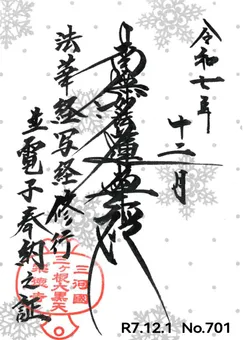 令和七年
十二月
南無妙法蓮華経
法華経写経修行
電子奉納之証
三河國
三ヶ根大黒天
R7.12.1 No.701